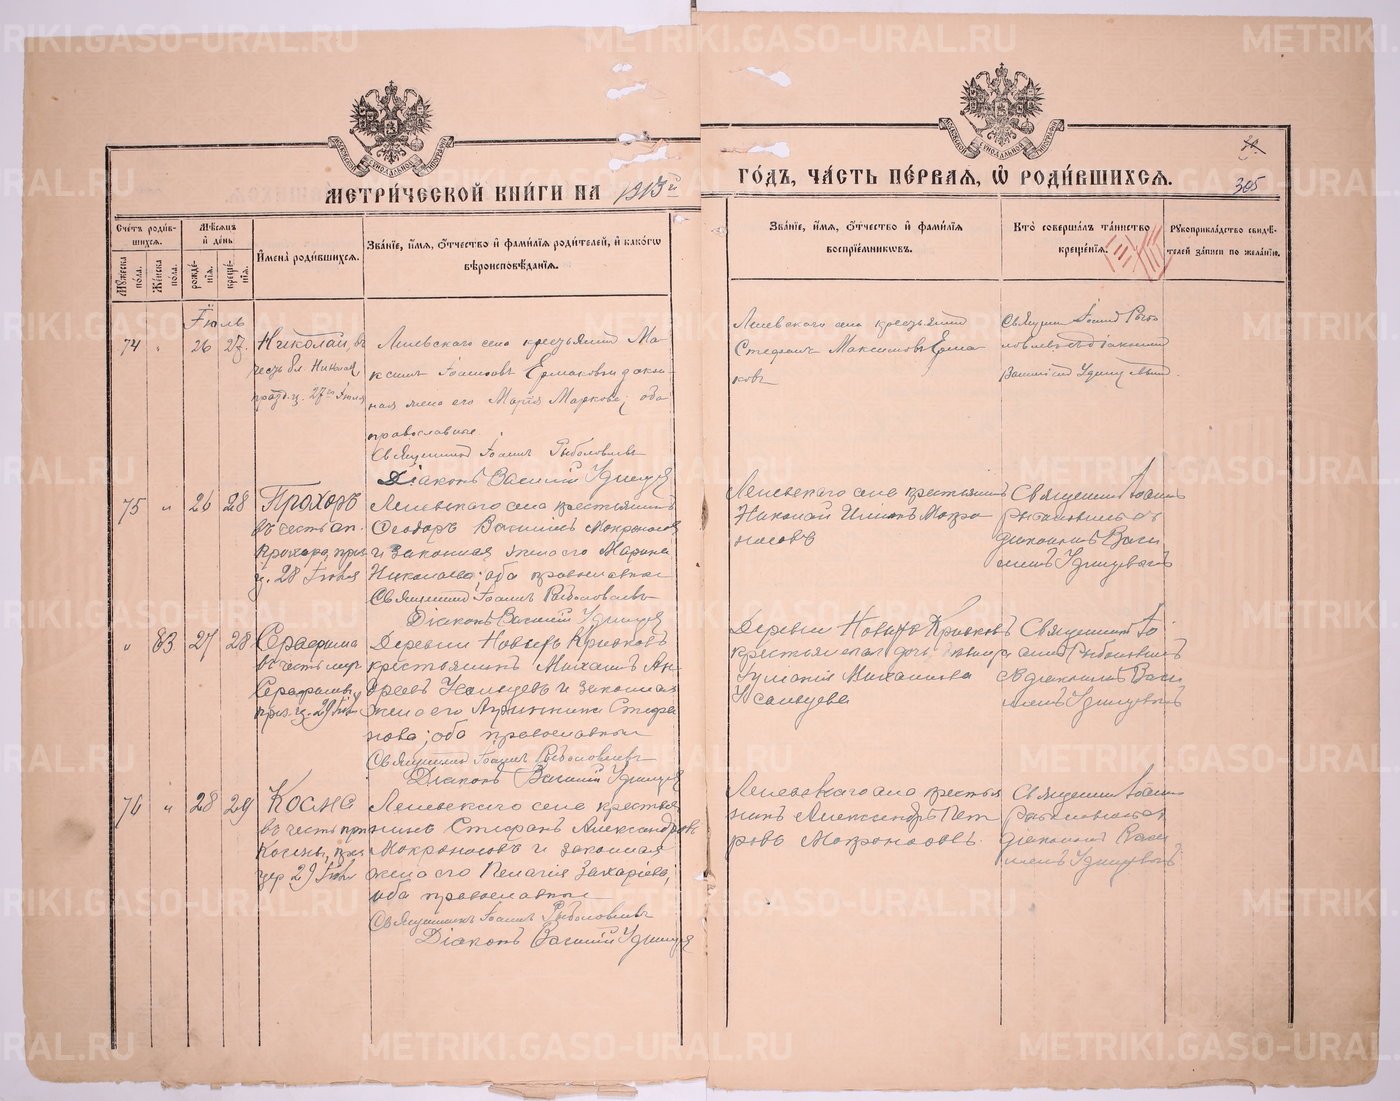 МЕТРИЧЕСКОЙ КНИГИ НА 1913й
ГОДЪ, ЧАСТЬ ПЕРВАЯ, Ѡ РОДИВШИХСЯ.
305
Счетъ родив-
шихся.
Мужеска
пола.
Женска
пола.
Мѣсяцъ
и день
рожде-
нія.
креще-
нія.
Имена родившихся.
Званіе, имя, отчество и фамилія родителей, и какого
вѣроисповѣданія.
Званіе, имя, отчество и фамилія
воспріемниковъ.
Кто совершалъ таинство
крещенія.
Рукоприкладство свидѣ-
телей записи по желанію.
Іюль
74 " 26 27
Николай, въ
честь бл. Николая
празд. ц. 27го Іюля
села крестьянинъ Ма-
ксимъ Ермаковъ и закон-
ная жена его Марія Маркова; оба
православные
Священникъ Іоаннъ Рыболовлевъ
Діаконъ Василій Удинцевъ
села крестьянинъ
Стефанъ Максимовъ Ерма
ковъ
Священ. Іоаннъ Рыбо
ловлевъ съ діакономъ
Василіемъ Удинцевымъ
75 " 26 28
Прохоръ
въ честь ап.
Прохора, праз
ц. 28 Іюля
села крестьянинъ
Ѳеодоръ Васильевъ Мокроносовъ
и законная жена его Марина
Николаева; оба православные
Священникъ Іоаннъ Рыболовлевъ
Діаконъ Василій Удинцевъ
села крестьянинъ
Николай Мокро
носовъ
Священникъ Іоаннъ
Рыболовлевъ съ
діакономъ Васи
ліемъ Удинцевымъ
" 83 27 28
Серафима
въ честь муч.
Серафимы,
праз. ц. 29 Іюля
Деревни Новыхъ Кривковъ
крестьянинъ Михаилъ Ан-
дреевъ Усальцевъ и законная
жена его Стефа
нова; оба православные
Священникъ Іоаннъ Рыболовлевъ
Діаконъ Василій Удинцевъ
Деревни Новыхъ Кривковъ
крестьянская дочь
Михаилова
Усальцева
Священникъ Іо
аннъ Рыболовлевъ
съ діакономъ Васи
ліемъ Удинцевымъ
76 " 28 29
Косма
въ честь прп
Космы, праз
цер 29 Іюля
села крестья
нинъ Стефанъ Александровъ
Мокроносовъ и законная
жена его Пелагія Захаріева,
оба православные
Священникъ Іоаннъ Рыболовлевъ
Діаконъ Василій Удинцевъ
села крестья
нинъ Александръ Пет
ровъ Мокроносовъ.
Священникъ Іоаннъ
Рыболовлевъ съ
діакономъ Васи
ліемъ Удинцевымъ.
METRIKI.GASO-URAL.RU